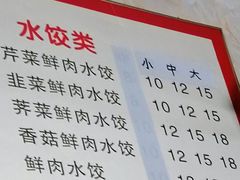 水饺类
小 中 大
芹菜鲜肉水饺 10 12 15
韭菜鲜肉水饺 10 12 15
荠菜鲜肉水饺 10 12 15
香菇鲜肉水饺 12 15 18
鲜肉水饺 12 15 18